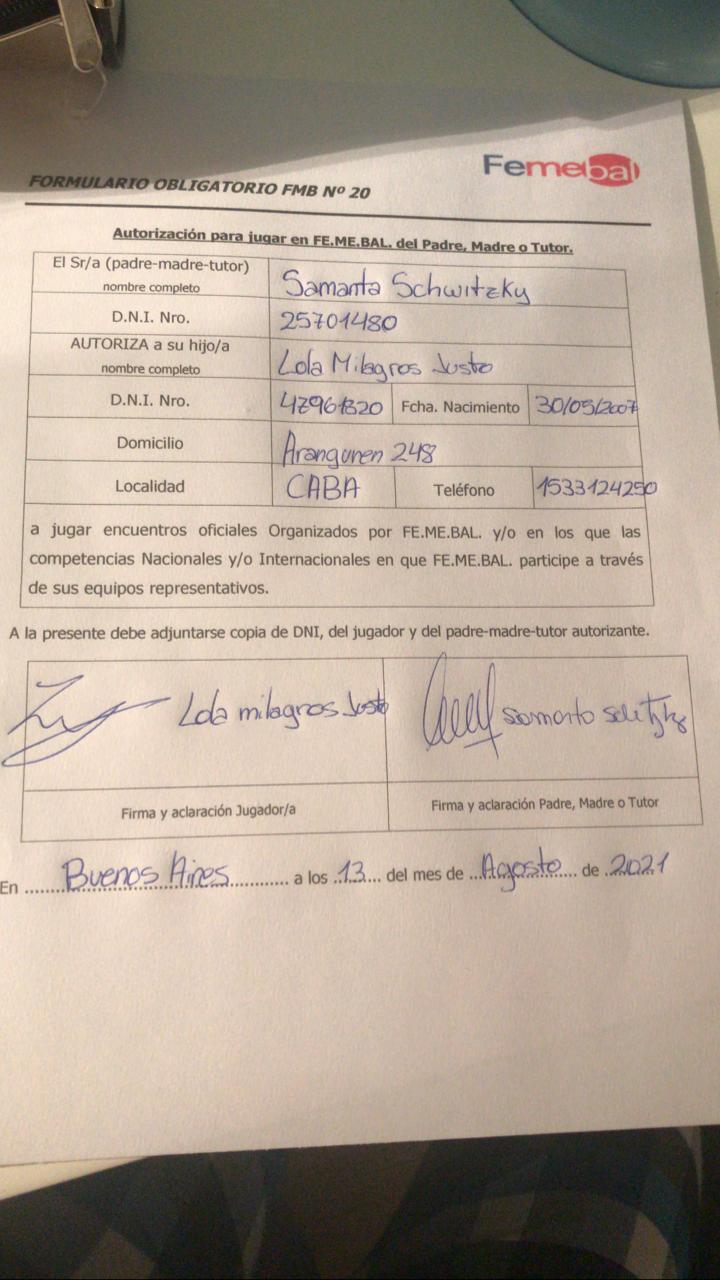 Femebal
FORMULARIO OBLIGATORIO FMB Nº 20
Autorización para jugar en FE.ME.BAL. del Padre, Madre o Tutor.
El Sr/a (padre-madre-tutor)
nombre completo
Samanta Schwitzky
D.N.I. Nro.
25701480
AUTORIZA a su hijo/a
nombre completo
Lola Milagros Justo
D.N.I. Nro.
Fcha. Nacimiento 30/05/2007
Domicilio
Aranguren 248
Localidad CABA Teléfono 1533124250
a jugar encuentros oficiales Organizados por FE.ME.BAL. y/o en los que las
competencias Nacionales y/o Internacionales en que FE.ME.BAL. participe a través
de sus equipos representativos.
A la presente debe adjuntarse copia de DNI, del jugador y del padre-madre-tutor autorizante.
Lola milagros Justo
Firma y aclaración Jugador/a
Firma y aclaración Padre, Madre o Tutor
En Buenos Aires a los 13 del mes de Agosto de 2021